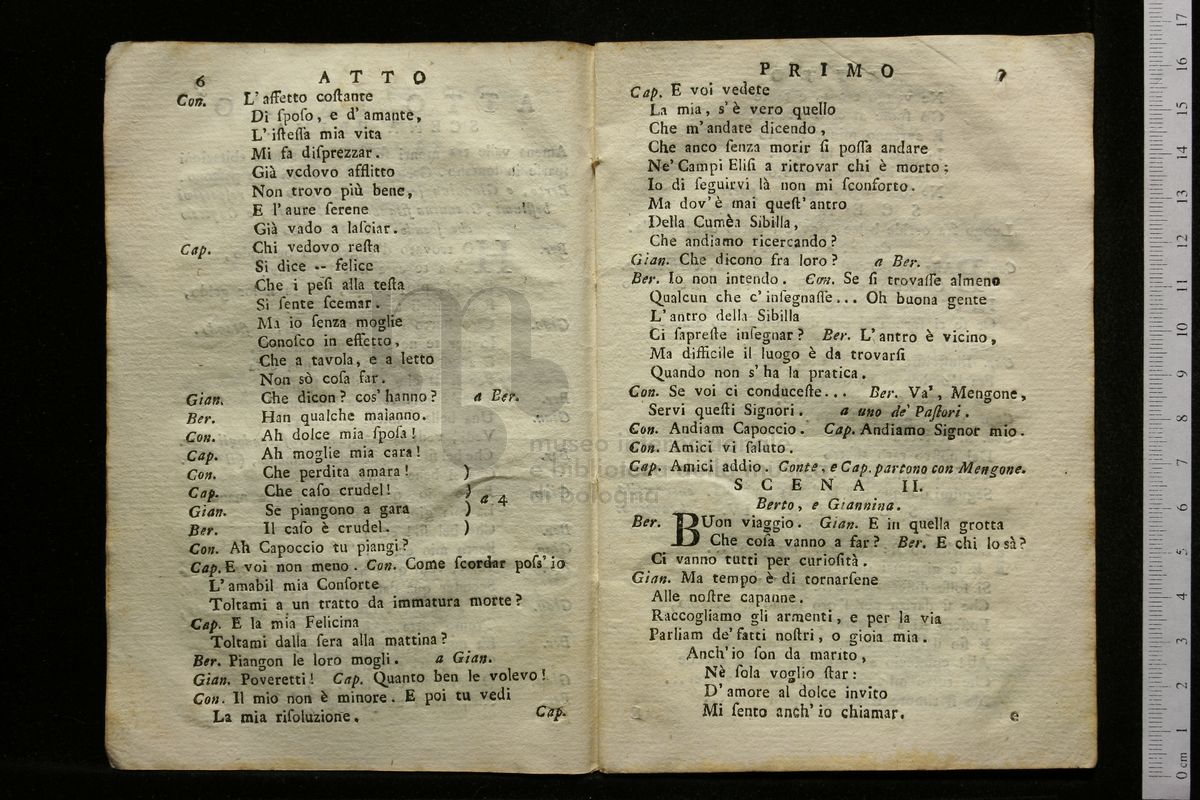 6 ATTO
Con. L'affetto coſtante
Di ſpoſo, e d'amante,
L'iſteſſa mia vita
Mi fa diſprezzar.
Già vedovo afflitto
Non trovo più bene,
E l'aure ſerene
Già vado a laſciar.
Cap. Chi vedovo reſta
Si dice -- felice
Che i peſi alla teſta
Si ſente ſcemar.
Ma io ſenza moglie
Conoſco in effetto,
Che a tavola, e a letto
Non sò coſa far.
Gian. Che dicon? cos'hanno? a Ber.
Ber. Han qualche malanno.
Con. Ah dolce mia ſpoſa!
Cap. Ah moglie mia cara!
Con. Che perdita amara! )
Cap. Che caſo crudel! )
Gian. Se piangono a gara ) a 4
Ber. Il caſo è crudel. )
Con. Ah Capoccio tu piangi?
Cap. E voi non meno. Con. Come ſcordar poſs'io
L'amabil mia Conſorte
Toltami a un tratto da immatura morte?
Cap. E la mia Felicina
Toltami dalla ſera alla mattina?
Ber. Piangon le loro mogli. a Gian.
Gian. Poveretti! Cap. Quanto ben le volevo!
Con. Il mio non è minore. E poi tu vedi
La mia riſoluzione. Cap.
PRIMO 7
Cap. E voi vedete
La mia, s'è vero quello
Che m'andate dicendo,
Che anco ſenza morir ſi poſſa andare
Ne' Campi Eliſi a ritrovar chi è morto;
Io di ſeguirvi là non mi ſconforto.
Ma dov'è mai queſt'antro
Della Cumèa Sibilla,
Che andiamo ricercando?
Gian. Che dicono fra loro? a Ber.
Ber. Io non intendo. Con. Se ſi trovaſſe almeno
Qualcun che c'inſegnaſſe... Oh buona gente
L'antro della Sibilla
Ci ſapreſte inſegnar? Ber. L'antro è vicino,
Ma difficile il luogo è da trovarſi
Quando non s'ha la pratica.
Con. Se voi ci conduceſte... Ber. Va', Mengone,
Servi queſti Signori. a uno de' Paſtori.
Con. Andiam Capoccio. Cap. Andiamo Signor mio.
Con. Amici vi ſaluto.
Cap. Amici addio. Conte, e Cap. partono con Mengone.
SCENA II.
Berto, e Giannina.
Ber. BUon viaggio. Gian. E in quella grotta
Che coſa vanno a far? Ber. E chi lo sà?
Ci vanno tutti per curioſità.
Gian. Ma tempo è di tornarſene
Alle noſtre capanne.
Raccogliamo gli armenti, e per la via
Parliam de' fatti noſtri, o gioia mia.
Anch'io ſon da marito,
Nè ſola voglio ſtar:
D'amore al dolce invito
Mi ſento anch'io chiamar. e
museo internazionale
e biblioteca della musica
di bologna
0 cm 1 2 3 4 5 6 7 8 9 10 11 12 13 14 15 16 17